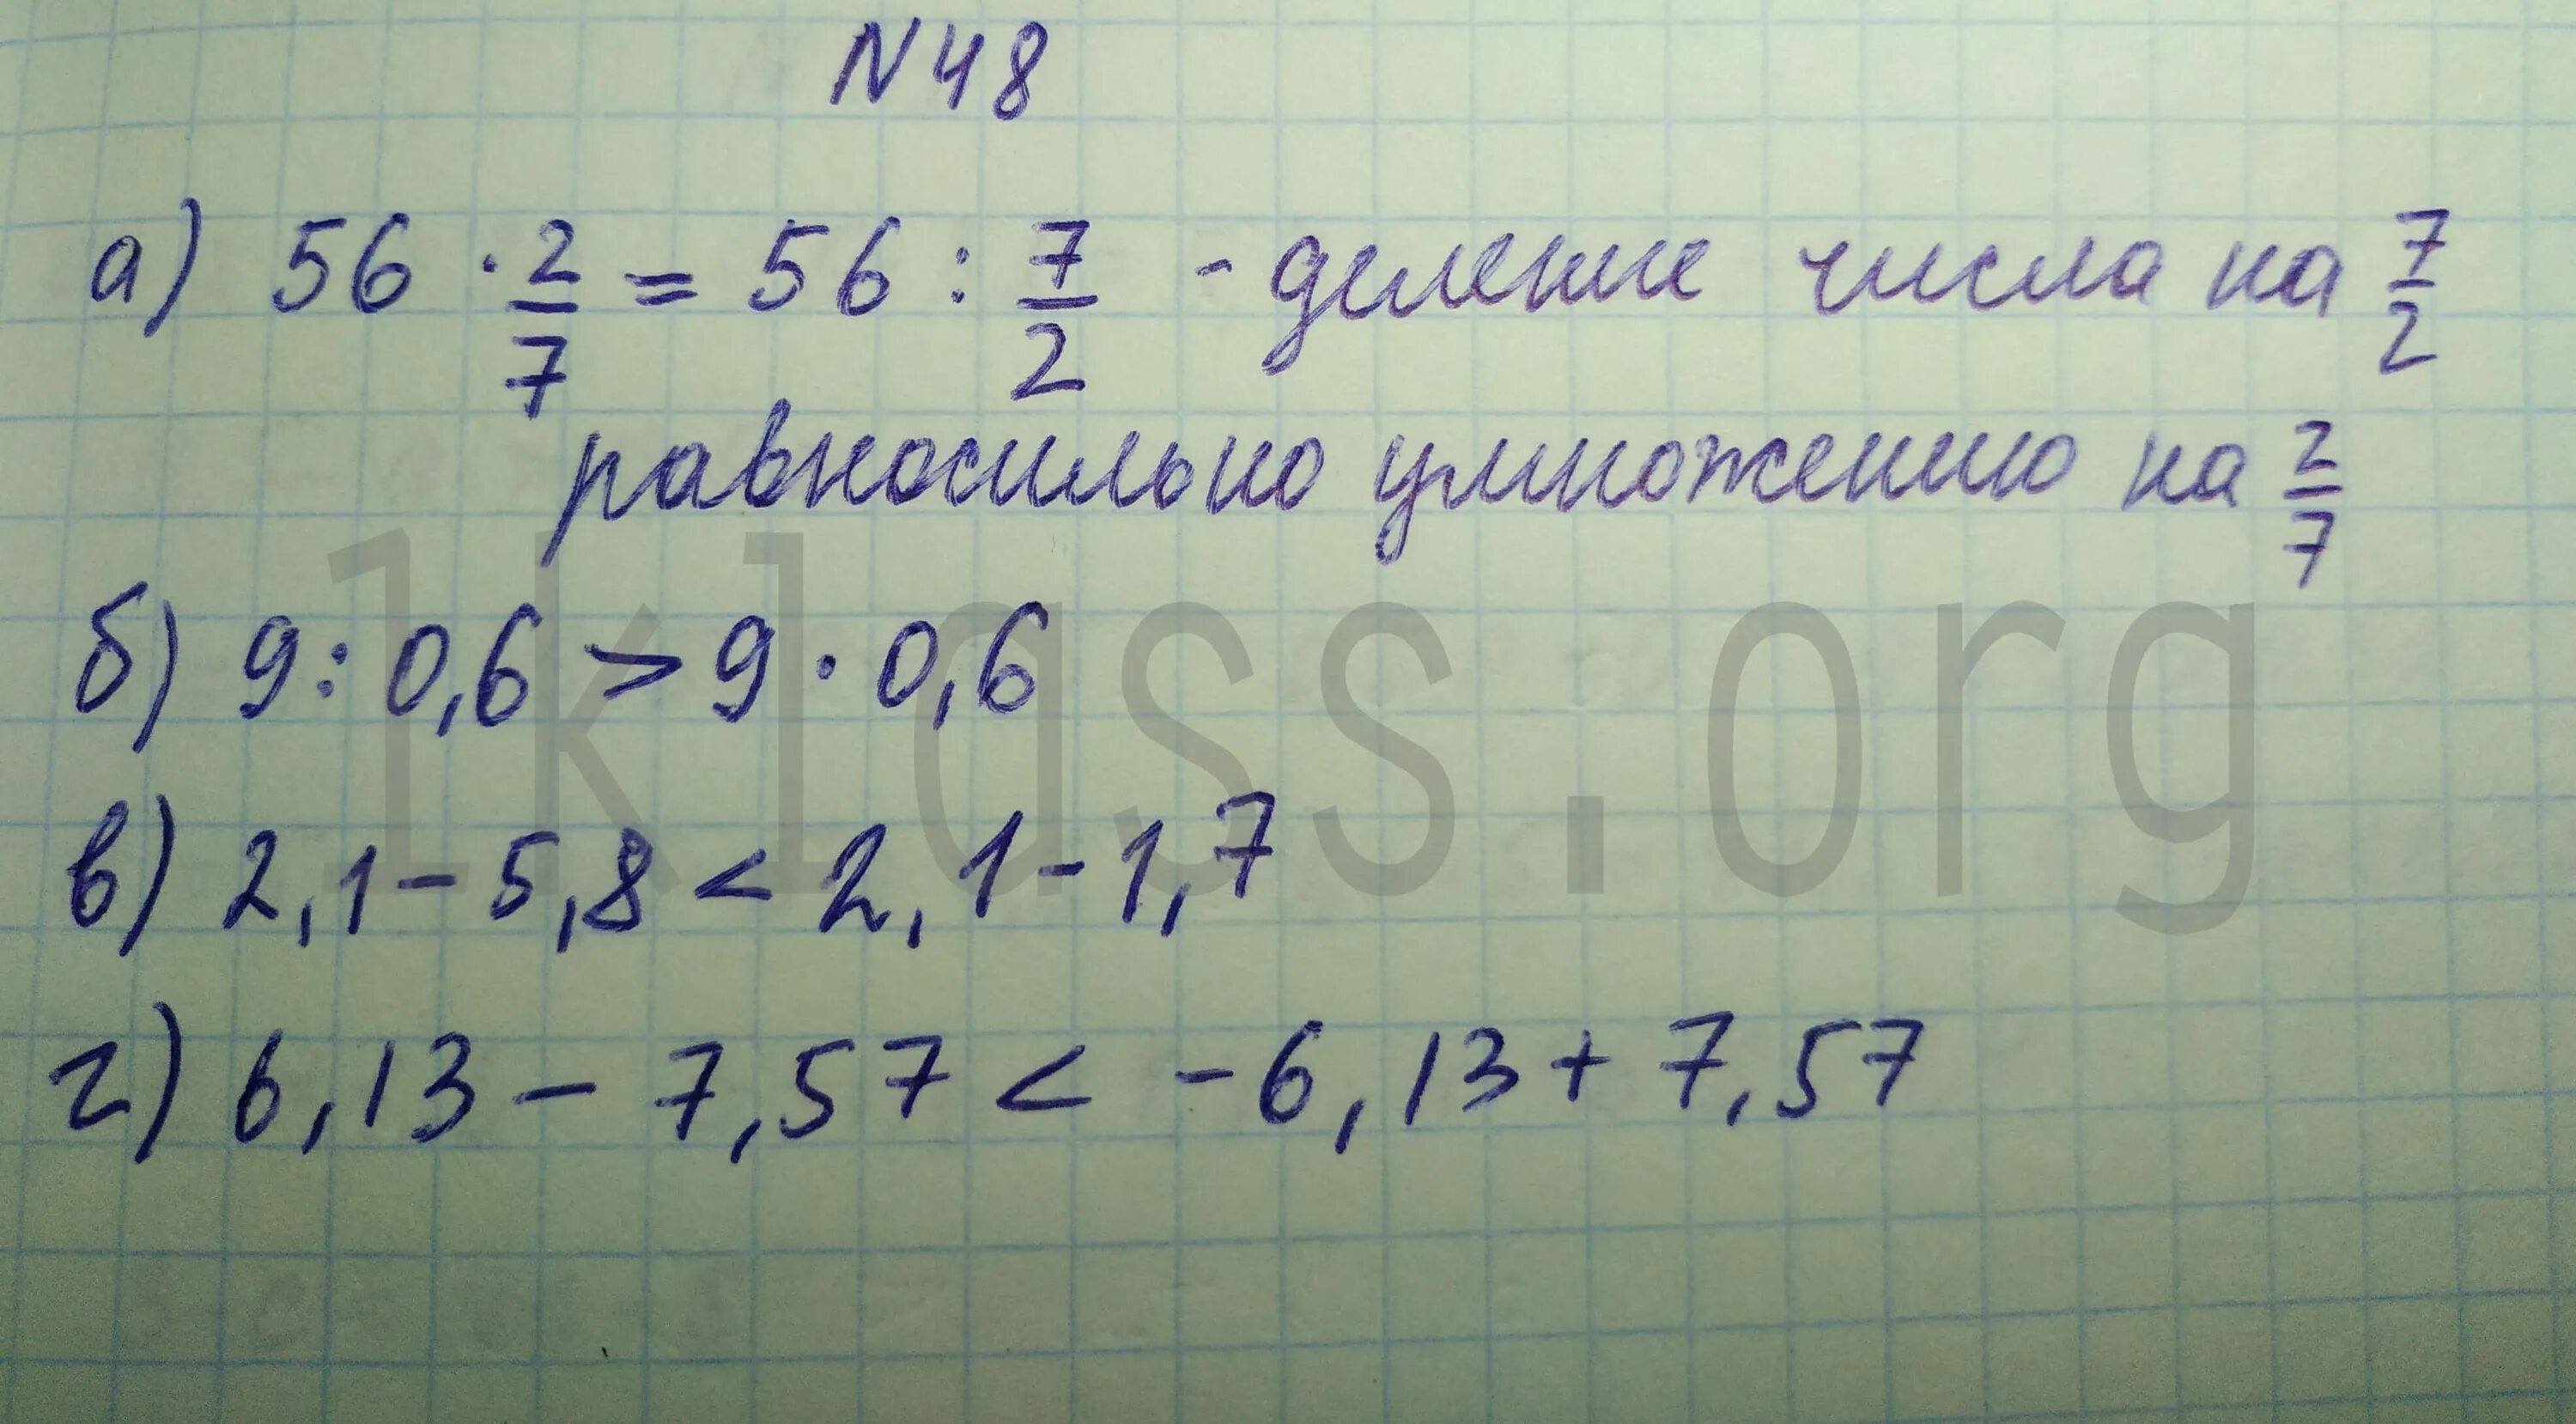 N 48
а) 56 · 2/7 = 56 : 7/2 - деление числа на 7/2
равносильно умножению на 2/7
б) 9 : 0,6 > 9 · 0,6
в) 2,1 - 5,8 < 2,1 - 1,7
г) 6,13 - 7,57 < - 6,13 + 7,57
1klass.org